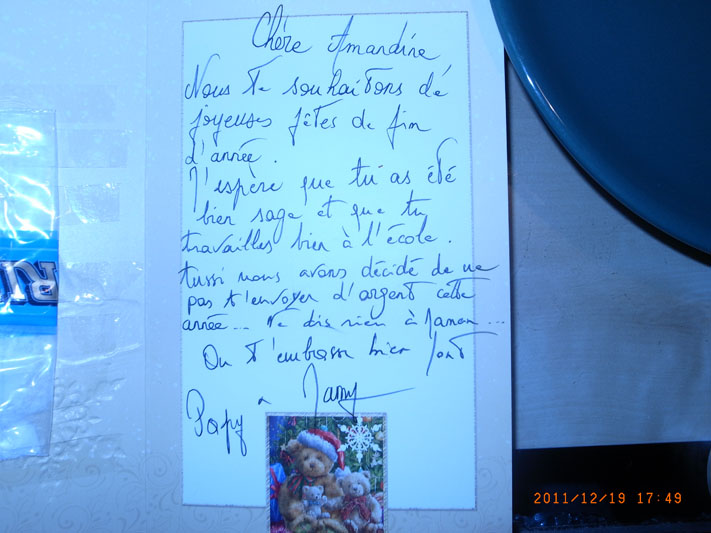 Chère Amandine
Nous te souhaitons de
joyeuses fêtes de fin
d'année.
J'espère que tu as été
bien sage et que tu
travailles bien à l'école.
Aussi nous avons décidé de ne
pas t'envoyer d'argent cette
année... Ne dis rien à Maman...
On t'embrasse bien fort
Papy & Mamy
RI
2011/12/19 17:49